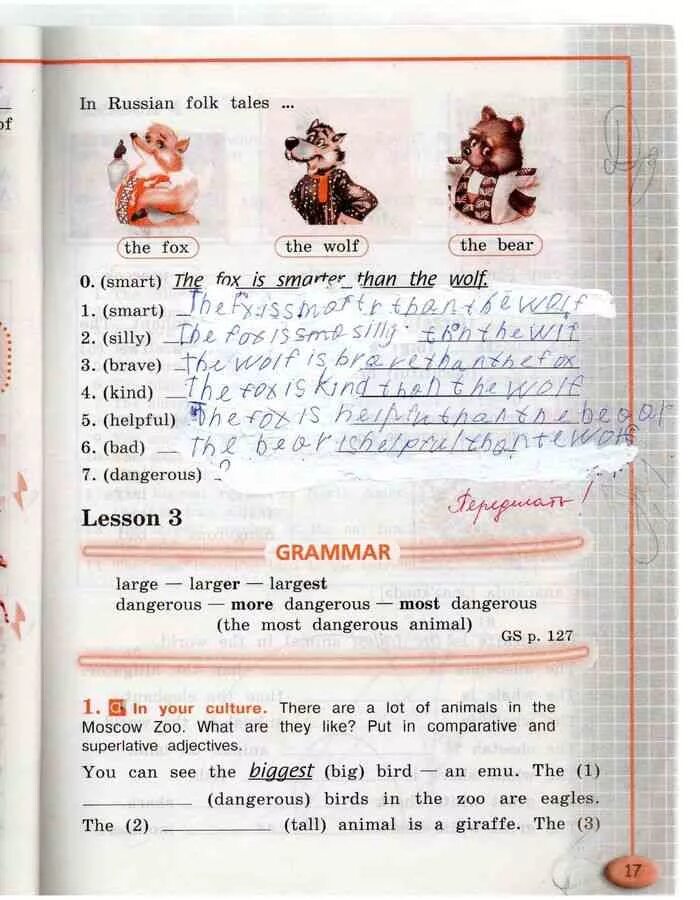 of
In Russian folk tales ...
the fox
the wolf
the bear
0. (smart) The fox is smarter than the wolf.
1. (smart) The fx is smartr than the wolf
2. (silly) The fox is smo silly. than the wlf
3. (brave) the wolf is brave than the fox
4. (kind) The fox is kind than the wolf
5. (helpful) The fox is helpfu than the beear
6. (bad) the bear is helpful than te wolf
7. (dangerous)
Переделать!
Lesson 3
GRAMMAR
large — larger — largest
dangerous — more dangerous — most dangerous
(the most dangerous animal)
GS p. 127
1. a In your culture. There are a lot of animals in the
Moscow Zoo. What are they like? Put in comparative and
superlative adjectives.
You can see the biggest (big) bird — an emu. The (1)
(dangerous) birds in the zoo are eagles.
The (2) (tall) animal is a giraffe. The (3)
17